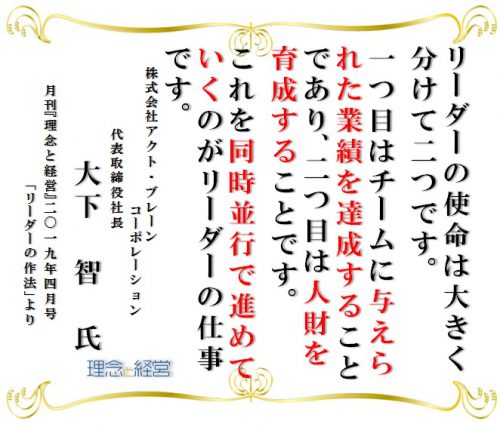 リーダーの使命は大きく
分けて二つです。
一つ目はチームに与えら
れた業績を達成すること
であり、二つ目は人財を
育成することです。
これを同時並行で進めて
いくのがリーダーの仕事
です。
株式会社アクト・ブレーン
コーポレーション
代表取締役社長
大下 智 氏
月刊『理念と経営』二〇一九年四月号
「リーダーの作法」より
理念と経営